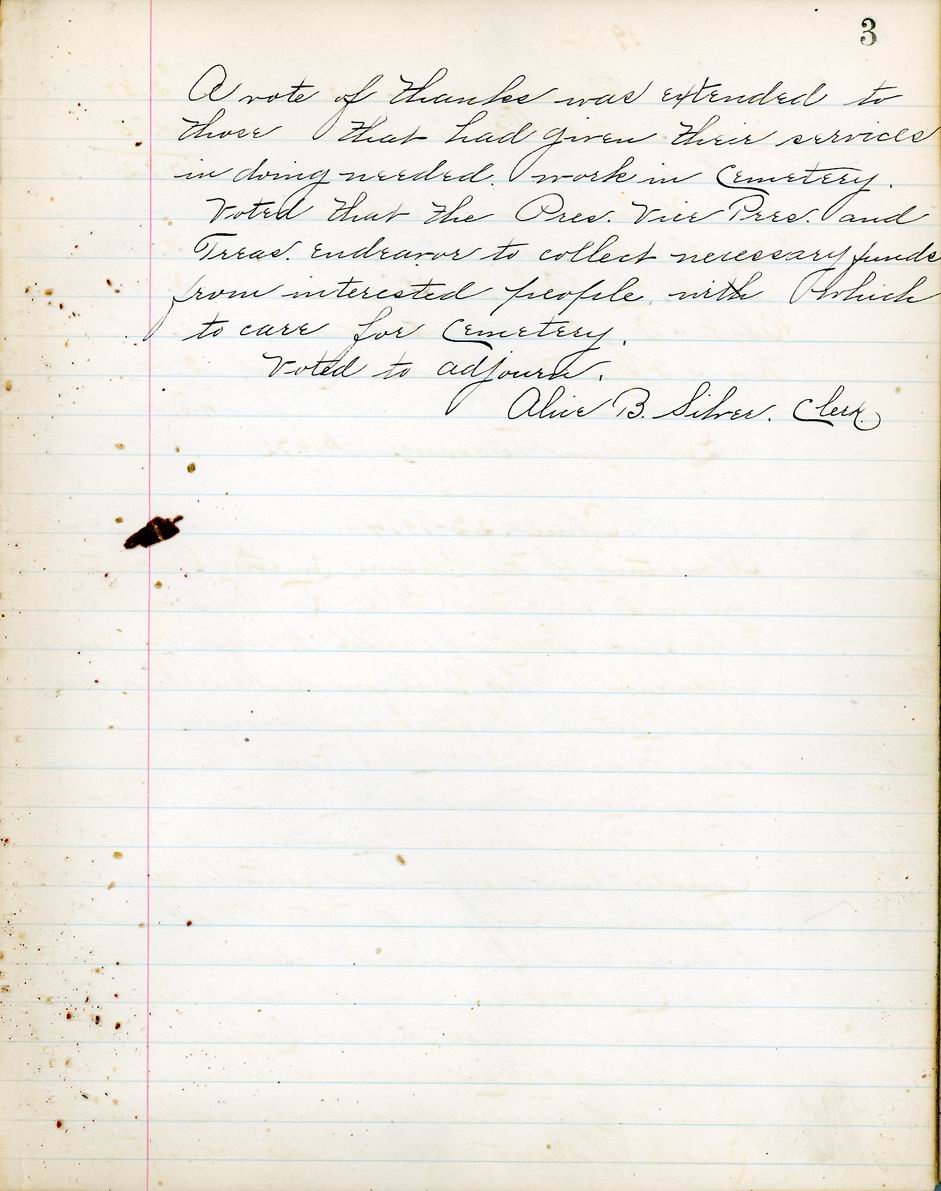 3
A vote of thanks was extended to
those that had given their services
in doing needed work in Cemetery.
Voted that the Pres. Vice Pres. and
Treas. endeavor to collect necessary funds
from interested people, with which
to care for Cemetery.
Voted to adjourn.
Alice B. Silver. Clerk